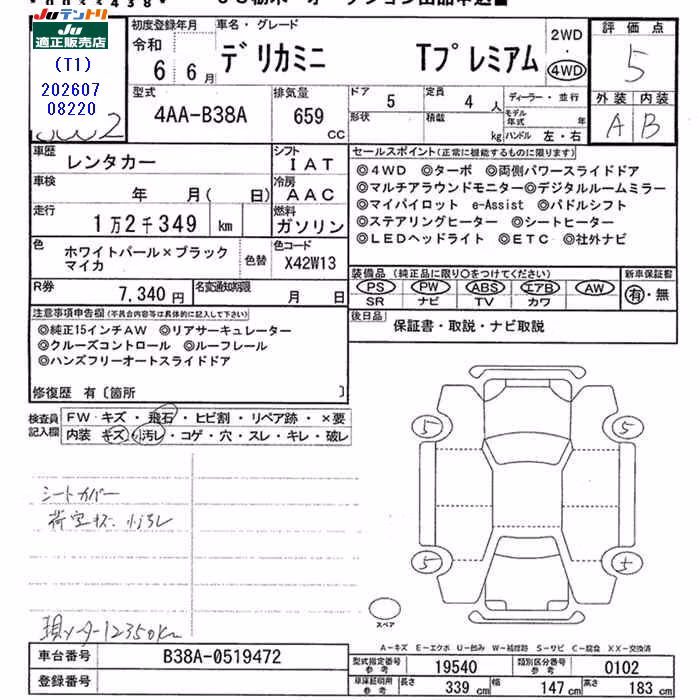 Ju テントリ
Ju
適正販売店
(T1)
202607
08220
初度登録年月 車名・グレード 2WD 評価点
令和 デリカミニ Tプレミアム ・ 5
6 6月 4WD
型式 排気量 ドア 5 定員 4人 ディーラー・並行 外装 内装
4AA-B38A 659 形状 積載 モデル年式 年 A B
CC kg ハンドル 左・右
車歴 レンタカー シフト IAT セールスポイント(正常に機能するものに限ります)
車検 年 月( 日) 冷房 AAC
◎4WD ◎ターボ ◎両側パワースライドドア
◎マルチアラウンドモニター◎デジタルルームミラー
走行 1万2千349 km 燃料 ガソリン
◎マイパイロット e-Assist ◎パドルシフト
◎ステアリングヒーター ◎シートヒーター
◎LEDヘッドライト ◎ETC ◎社外ナビ
色 ホワイトパール×ブラックマイカ 色替 色コード X42W13
装備品(純正品に限り○をつけてください) 新車保証書
PS PW ABS エアB AW 有・無
SR ナビ TV カワ
R券 7,340円 名変通知期限 月 日
後日品 保証書・取説・ナビ取説
注意事項申告欄(不具合内容等は具体的に記入して下さい)
◎純正15インチAW ◎リアサーキュレーター
◎クルーズコントロール ◎ルーフレール
◎ハンズフリーオートスライドドア
修復歴 有〔箇所 〕
検査員記入欄 FW キズ・飛石・ヒビ割・リペア跡・×要
内装 キズ・小汚レ・コゲ・穴・スレ・キレ・破レ
5 5
シートカバー
荷室キズ、小汚レ
5 5
スペア
現メーター12350km
A-キズ E-エクボ U-凹み W-補修跡 S-サビ C-腐食 XX-交換済
車台番号 B38A-0519472 型式指定番号 参考 19540 類別区分番号 参考 0102
登録番号 車庫証明用 参考 長さ 339cm 幅 147cm 高さ 183cm